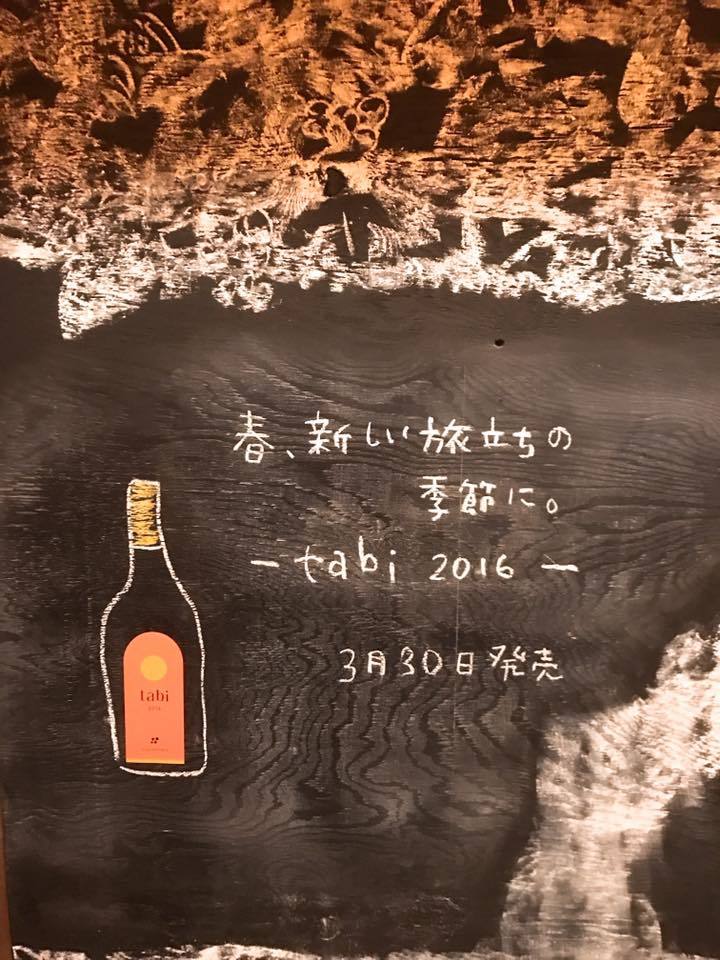 春、新しい旅立ちの
季節に。
ー tabi 2016 ー
3月30日発売
tabi